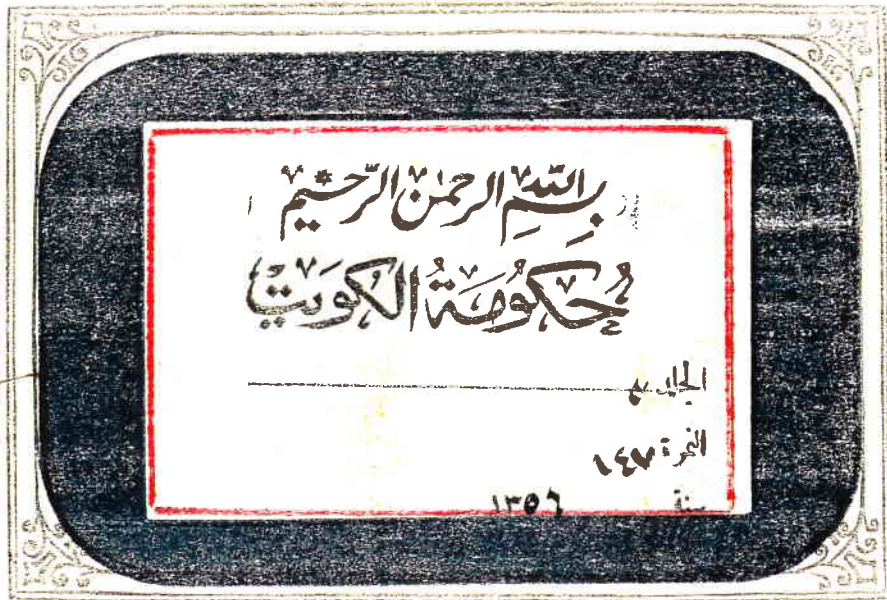 بِسْمِ اللهِ الرحمٰنِ الرَّحِيمِ
حُكُومَةُ الكُوَيت
الجلد
النمرة ١٤٧
سنة ١٣٥٦